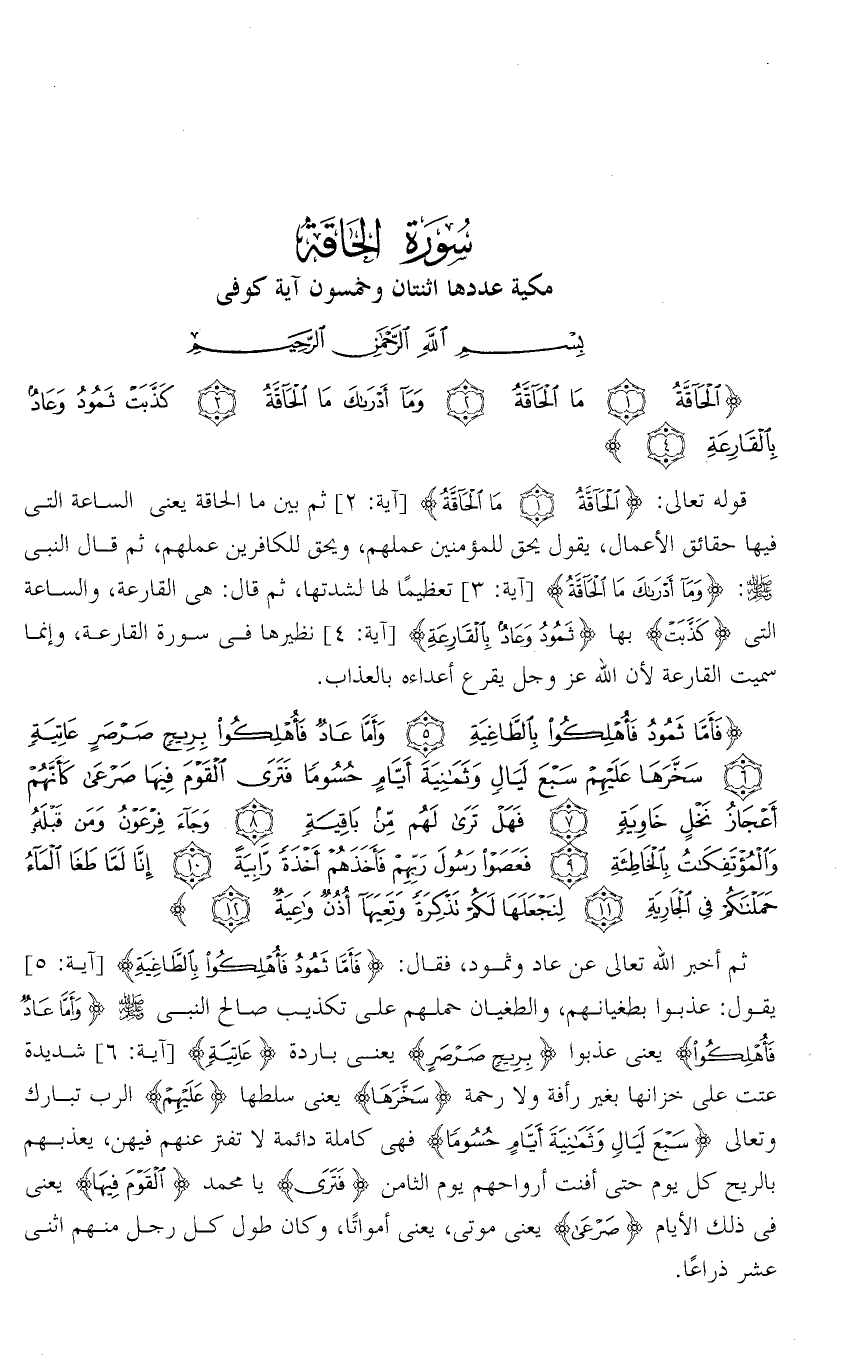 سُورَة الحَاقَة
مكية عددها اثنتان وخمسون آية كوفى
بِسْمِ اللَّهِ الرَّحْمَٰنِ الرَّحِيمِ
﴿ ٱلْحَآقَّةُ ۝١ مَا ٱلْحَآقَّةُ ۝٢ وَمَآ أَدْرَىٰكَ مَا ٱلْحَآقَّةُ ۝٣ كَذَّبَتْ ثَمُودُ وَعَادٌۢ
بِٱلْقَارِعَةِ ۝٤ ﴾
قوله تعالى: ﴿ ٱلْحَآقَّةُ ۝١ مَا ٱلْحَآقَّةُ ﴾ [آية: ٢] ثم بين ما الحاقة يعنى الساعة التى
فيها حقائق الأعمال، يقول يحق للمؤمنين عملهم، ويحق للكافرين عملهم، ثم قال النبى
ﷺ: ﴿ وَمَآ أَدْرَىٰكَ مَا ٱلْحَآقَّةُ ﴾ [آية: ٣] تعظيمًا لها لشدتها، ثم قال: هى القارعة، والساعة
التى ﴿ كَذَّبَتْ ﴾ بها ﴿ ثَمُودُ وَعَادٌۢ بِٱلْقَارِعَةِ ﴾ [آية: ٤] نظيرها فى سورة القارعة، وإنما
سميت القارعة لأن الله عز وجل يقرع أعداءه بالعذاب.
﴿ فَأَمَّا ثَمُودُ فَأُهْلِكُوا۟ بِٱلطَّاغِيَةِ ۝٥ وَأَمَّا عَادٌ فَأُهْلِكُوا۟ بِرِيحٍ صَرْصَرٍ عَاتِيَةٍ
۝٦ سَخَّرَهَا عَلَيْهِمْ سَبْعَ لَيَالٍ وَثَمَٰنِيَةَ أَيَّامٍ حُسُومًا فَتَرَى ٱلْقَوْمَ فِيهَا صَرْعَىٰ كَأَنَّهُمْ
أَعْجَازُ نَخْلٍ خَاوِيَةٍ ۝٧ فَهَلْ تَرَىٰ لَهُم مِّنۢ بَاقِيَةٍ ۝٨ وَجَآءَ فِرْعَوْنُ وَمَن قَبْلَهُۥ
وَٱلْمُؤْتَفِكَٰتُ بِٱلْخَاطِئَةِ ۝٩ فَعَصَوْا۟ رَسُولَ رَبِّهِمْ فَأَخَذَهُمْ أَخْذَةً رَّابِيَةً ۝١٠ إِنَّا لَمَّا طَغَا ٱلْمَآءُ
حَمَلْنَٰكُمْ فِى ٱلْجَارِيَةِ ۝١١ لِنَجْعَلَهَا لَكُمْ تَذْكِرَةً وَتَعِيَهَآ أُذُنٌ وَٰعِيَةٌ ۝١٢ ﴾
ثم أخبر الله تعالى عن عاد وثمود، فقال: ﴿ فَأَمَّا ثَمُودُ فَأُهْلِكُوا۟ بِٱلطَّاغِيَةِ ﴾ [آية: ٥]
يقول: عذبوا بطغيانهم، والطغيان حملهم على تكذيب صالح النبى ﷺ ﴿ وَأَمَّا عَادٌ
فَأُهْلِكُوا۟ ﴾ يعنى عذبوا ﴿ بِرِيحٍ صَرْصَرٍ ﴾ يعنى باردة ﴿ عَاتِيَةٍ ﴾ [آية: ٦] شديدة
عتت على خزانها بغير رأفة ولا رحمة ﴿ سَخَّرَهَا ﴾ يعنى سلطها ﴿ عَلَيْهِمْ ﴾ الرب تبارك
وتعالى ﴿ سَبْعَ لَيَالٍ وَثَمَٰنِيَةَ أَيَّامٍ حُسُومًا ﴾ فهى كاملة دائمة لا تفتر عنهم فيهن، يعذبهم
بالريح كل يوم حتى أفنت أرواحهم يوم الثامن ﴿ فَتَرَى ﴾ يا محمد ﴿ ٱلْقَوْمَ فِيهَا ﴾ يعنى
فى ذلك الأيام ﴿ صَرْعَىٰ ﴾ يعنى موتى، يعنى أمواتًا، وكان طول كل رجل منهم اثنى
عشر ذراعًا.